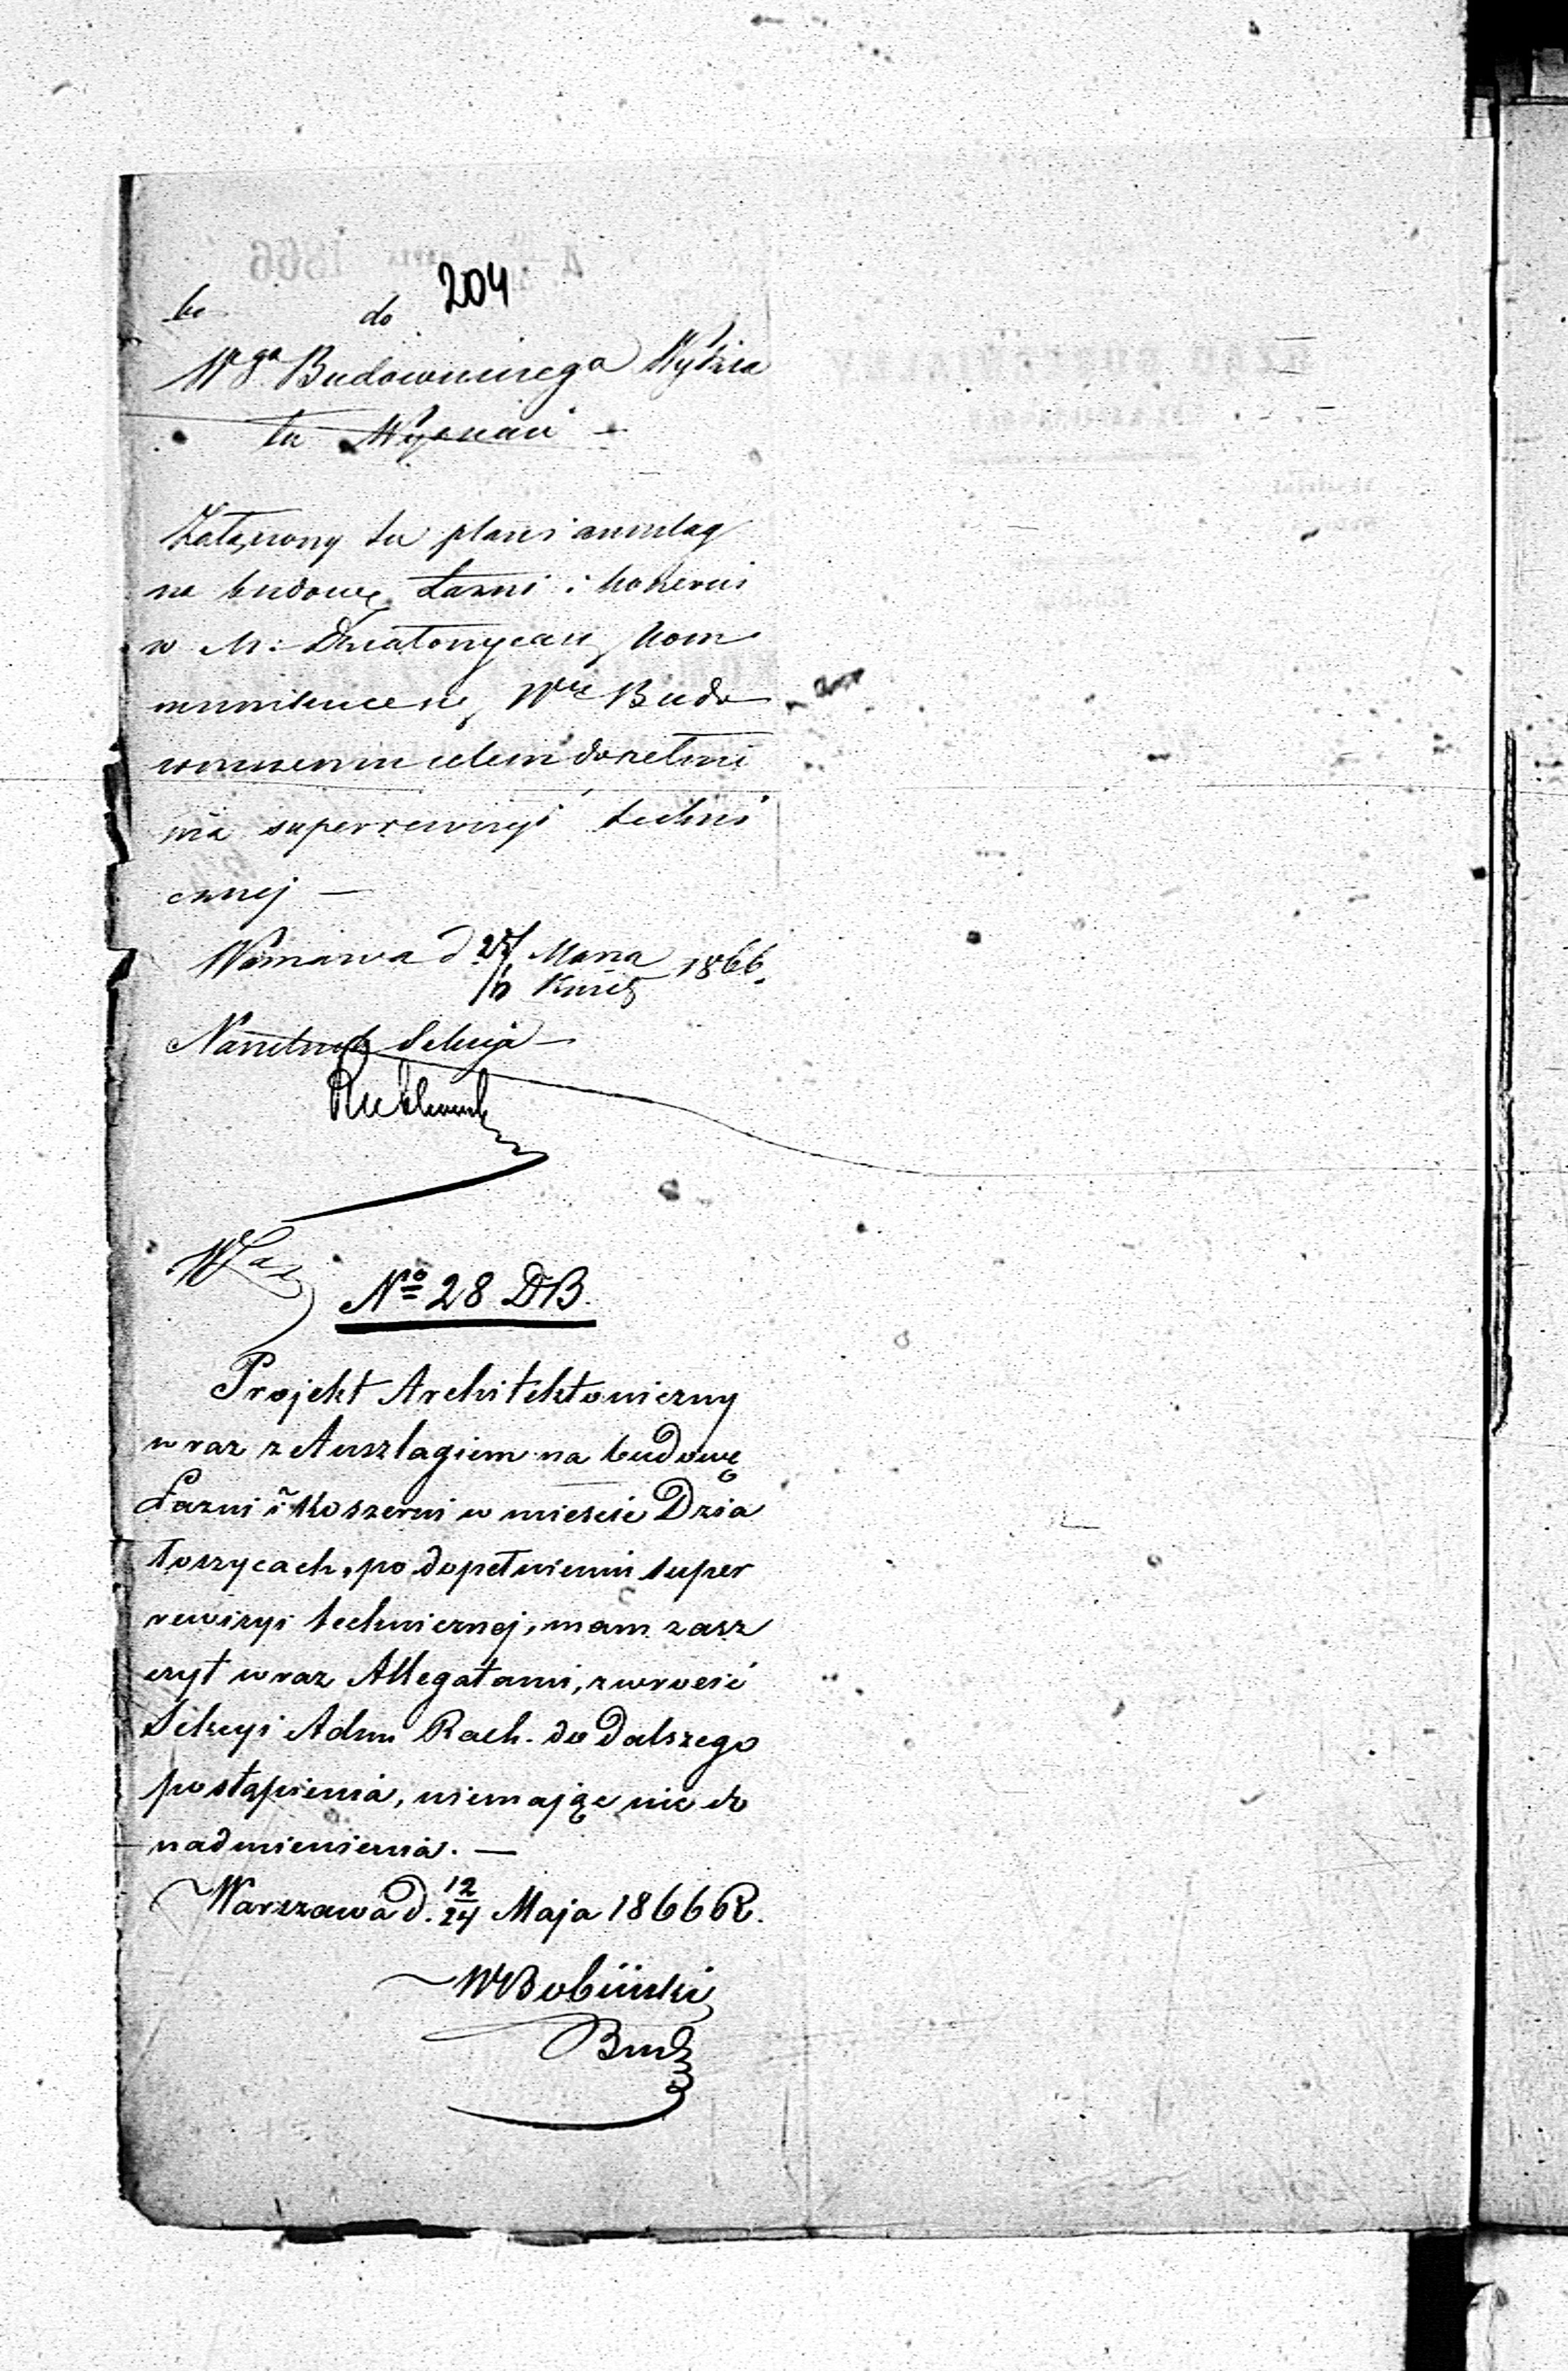 204
do
Wgo Budowniczego Wydzia
łu Wyznań —
Załączony tu plan i anszlag
na budowę Łazni i koszerni
w M: Działoszycach, kom
munikuce się Wu Budo
wniczemu celem dopełnie
nia superrewizyi techni
cznej —
Warszawa d 25/6 Maja Kwiet 1866.
Naczelnik Sekcyi —
No 28 DB.
Projekt Architektoniczny
wraz z Anszlagiem na budowę
Łazni i Koszerni w mieście Dzia
łoszycach, po dopełnieniu super
rewizyi technicznej, mam zasz
czyt wraz Allegatami, zwrócić
Sekcyi Adm Rach. do dalszego
postąpienia, niemając nic do
nadmienienia. —
Warszawa d. 12/24 Maja 1866 R.
WBobiński
Bud